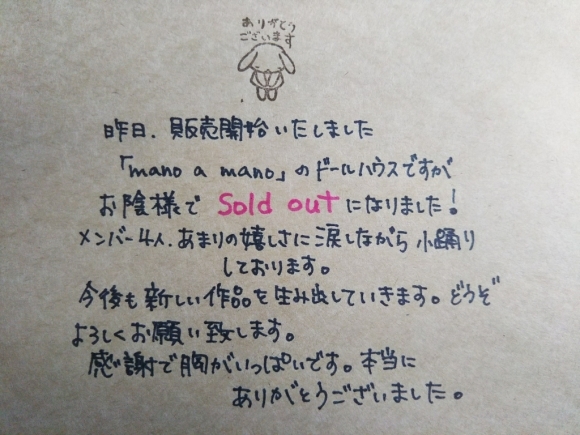 ありがとう
ございます
昨日、販売開始いたしました
「mano a mano」のドールハウスですが
お陰様で Sold out になりました！
メンバー4人、あまりの嬉しさに涙しながら小踊り
しております。
今後も新しい作品を生み出していきます。どうぞ
よろしくお願い致します。
感謝で胸がいっぱいです。本当に
ありがとうございました。